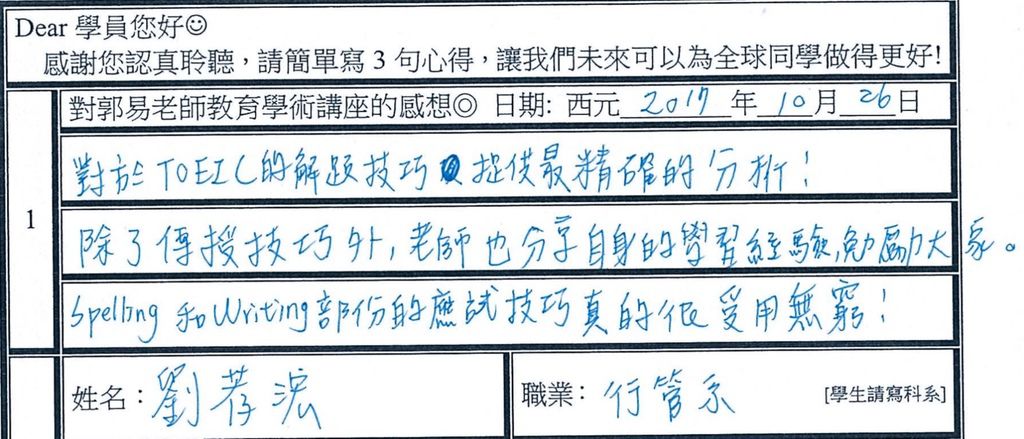 Dear 學員您好☺
感謝您認真聆聽，請簡單寫 3 句心得，讓我們未來可以為全球同學做得更好!
1
對郭易老師教育學術講座的感想◎ 日期: 西元 2017 年 10 月 26 日
對於TOEIC的解題技巧 提供最精確的分析！
除了傳授技巧外，老師也分享自身的學習經驗，勉勵大家。
Spelling 和 Writing 部份的應試技巧真的很受用無窮！
姓名：劉荐宏
職業：行管系 [學生請寫科系]